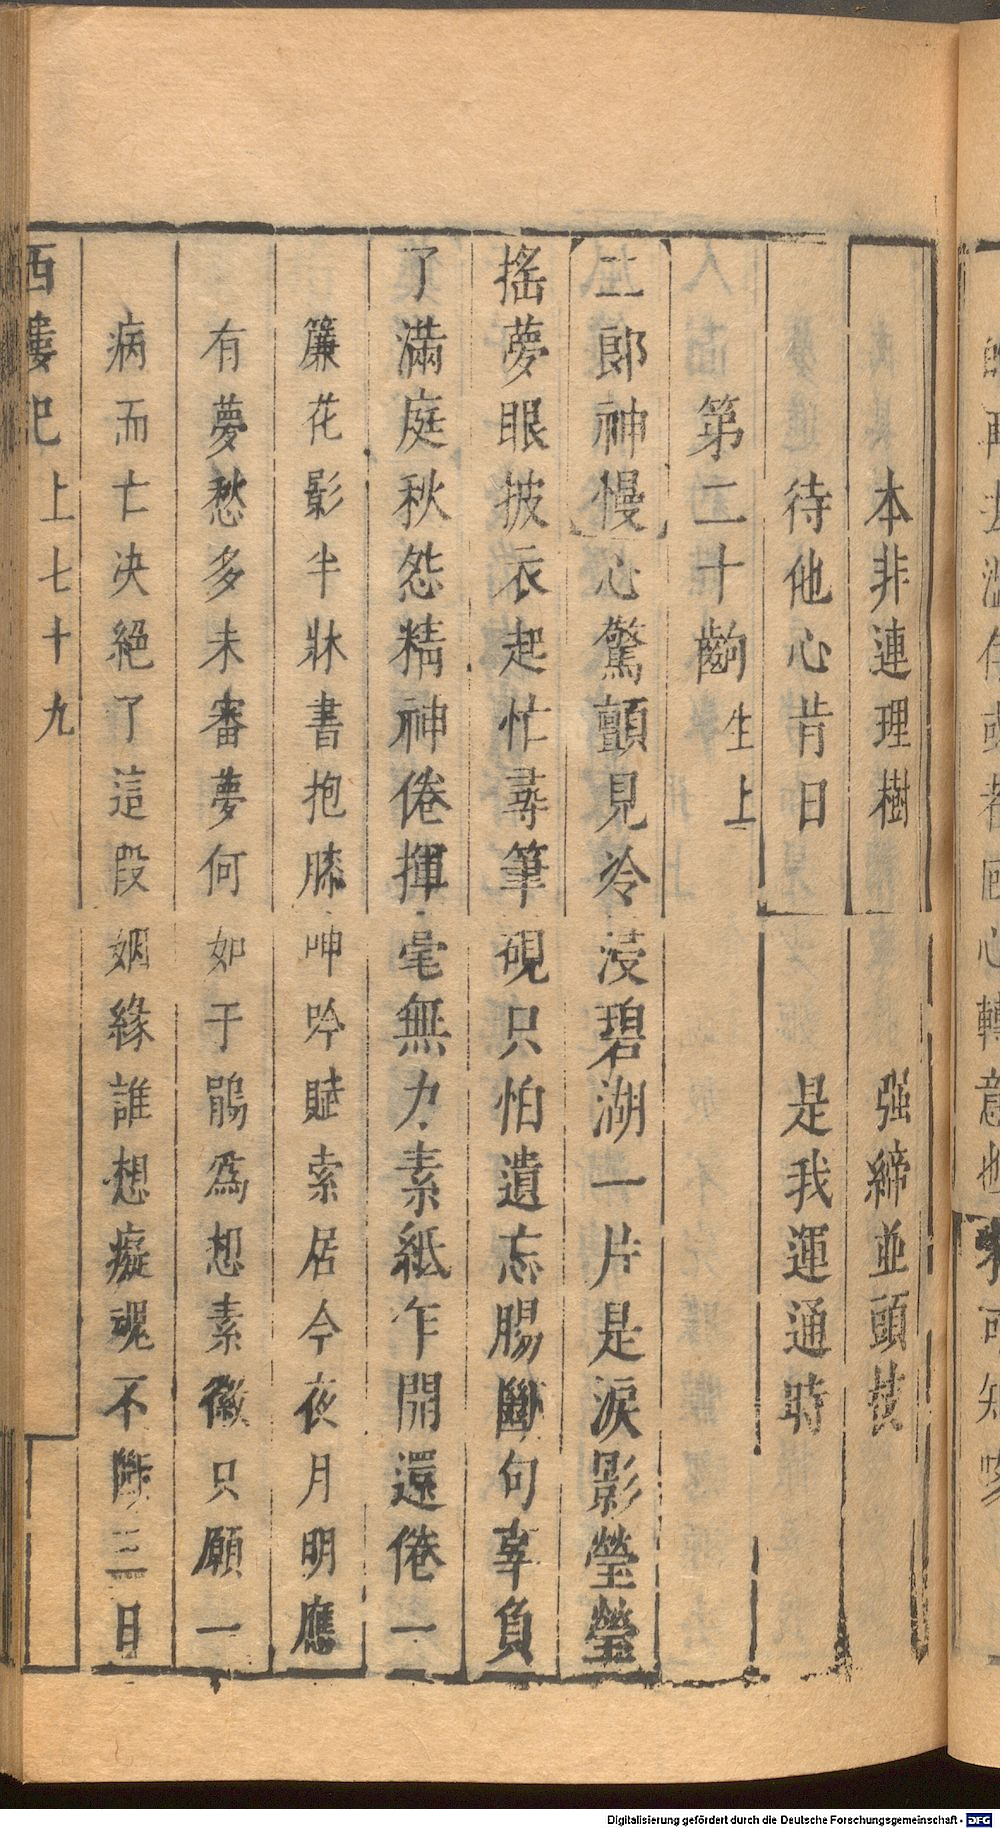 再去
回心轉意也
可知
本非連理樹　强締並頭枝
待他心肯日　是我運通時
第二十齣 生上
二郎神慢心驚顫見冷浸碧湖一片是淚影瑩瑩
搖夢眼披衣起忙尋筆硯只怕遺忘腸斷句辜負
了滿庭秋怨精神倦揮毫無力素紙乍開還倦一
簾花影半牀書抱膝呻吟賦索居今夜月明應
有夢愁多未審夢何如于鵑爲想素徽只願一
病而亡決絕了這段姻緣誰想癡魂不斷三日
西樓記 上 七十九
Digitalisierung gefördert durch die Deutsche Forschungsgemeinschaft - DFG